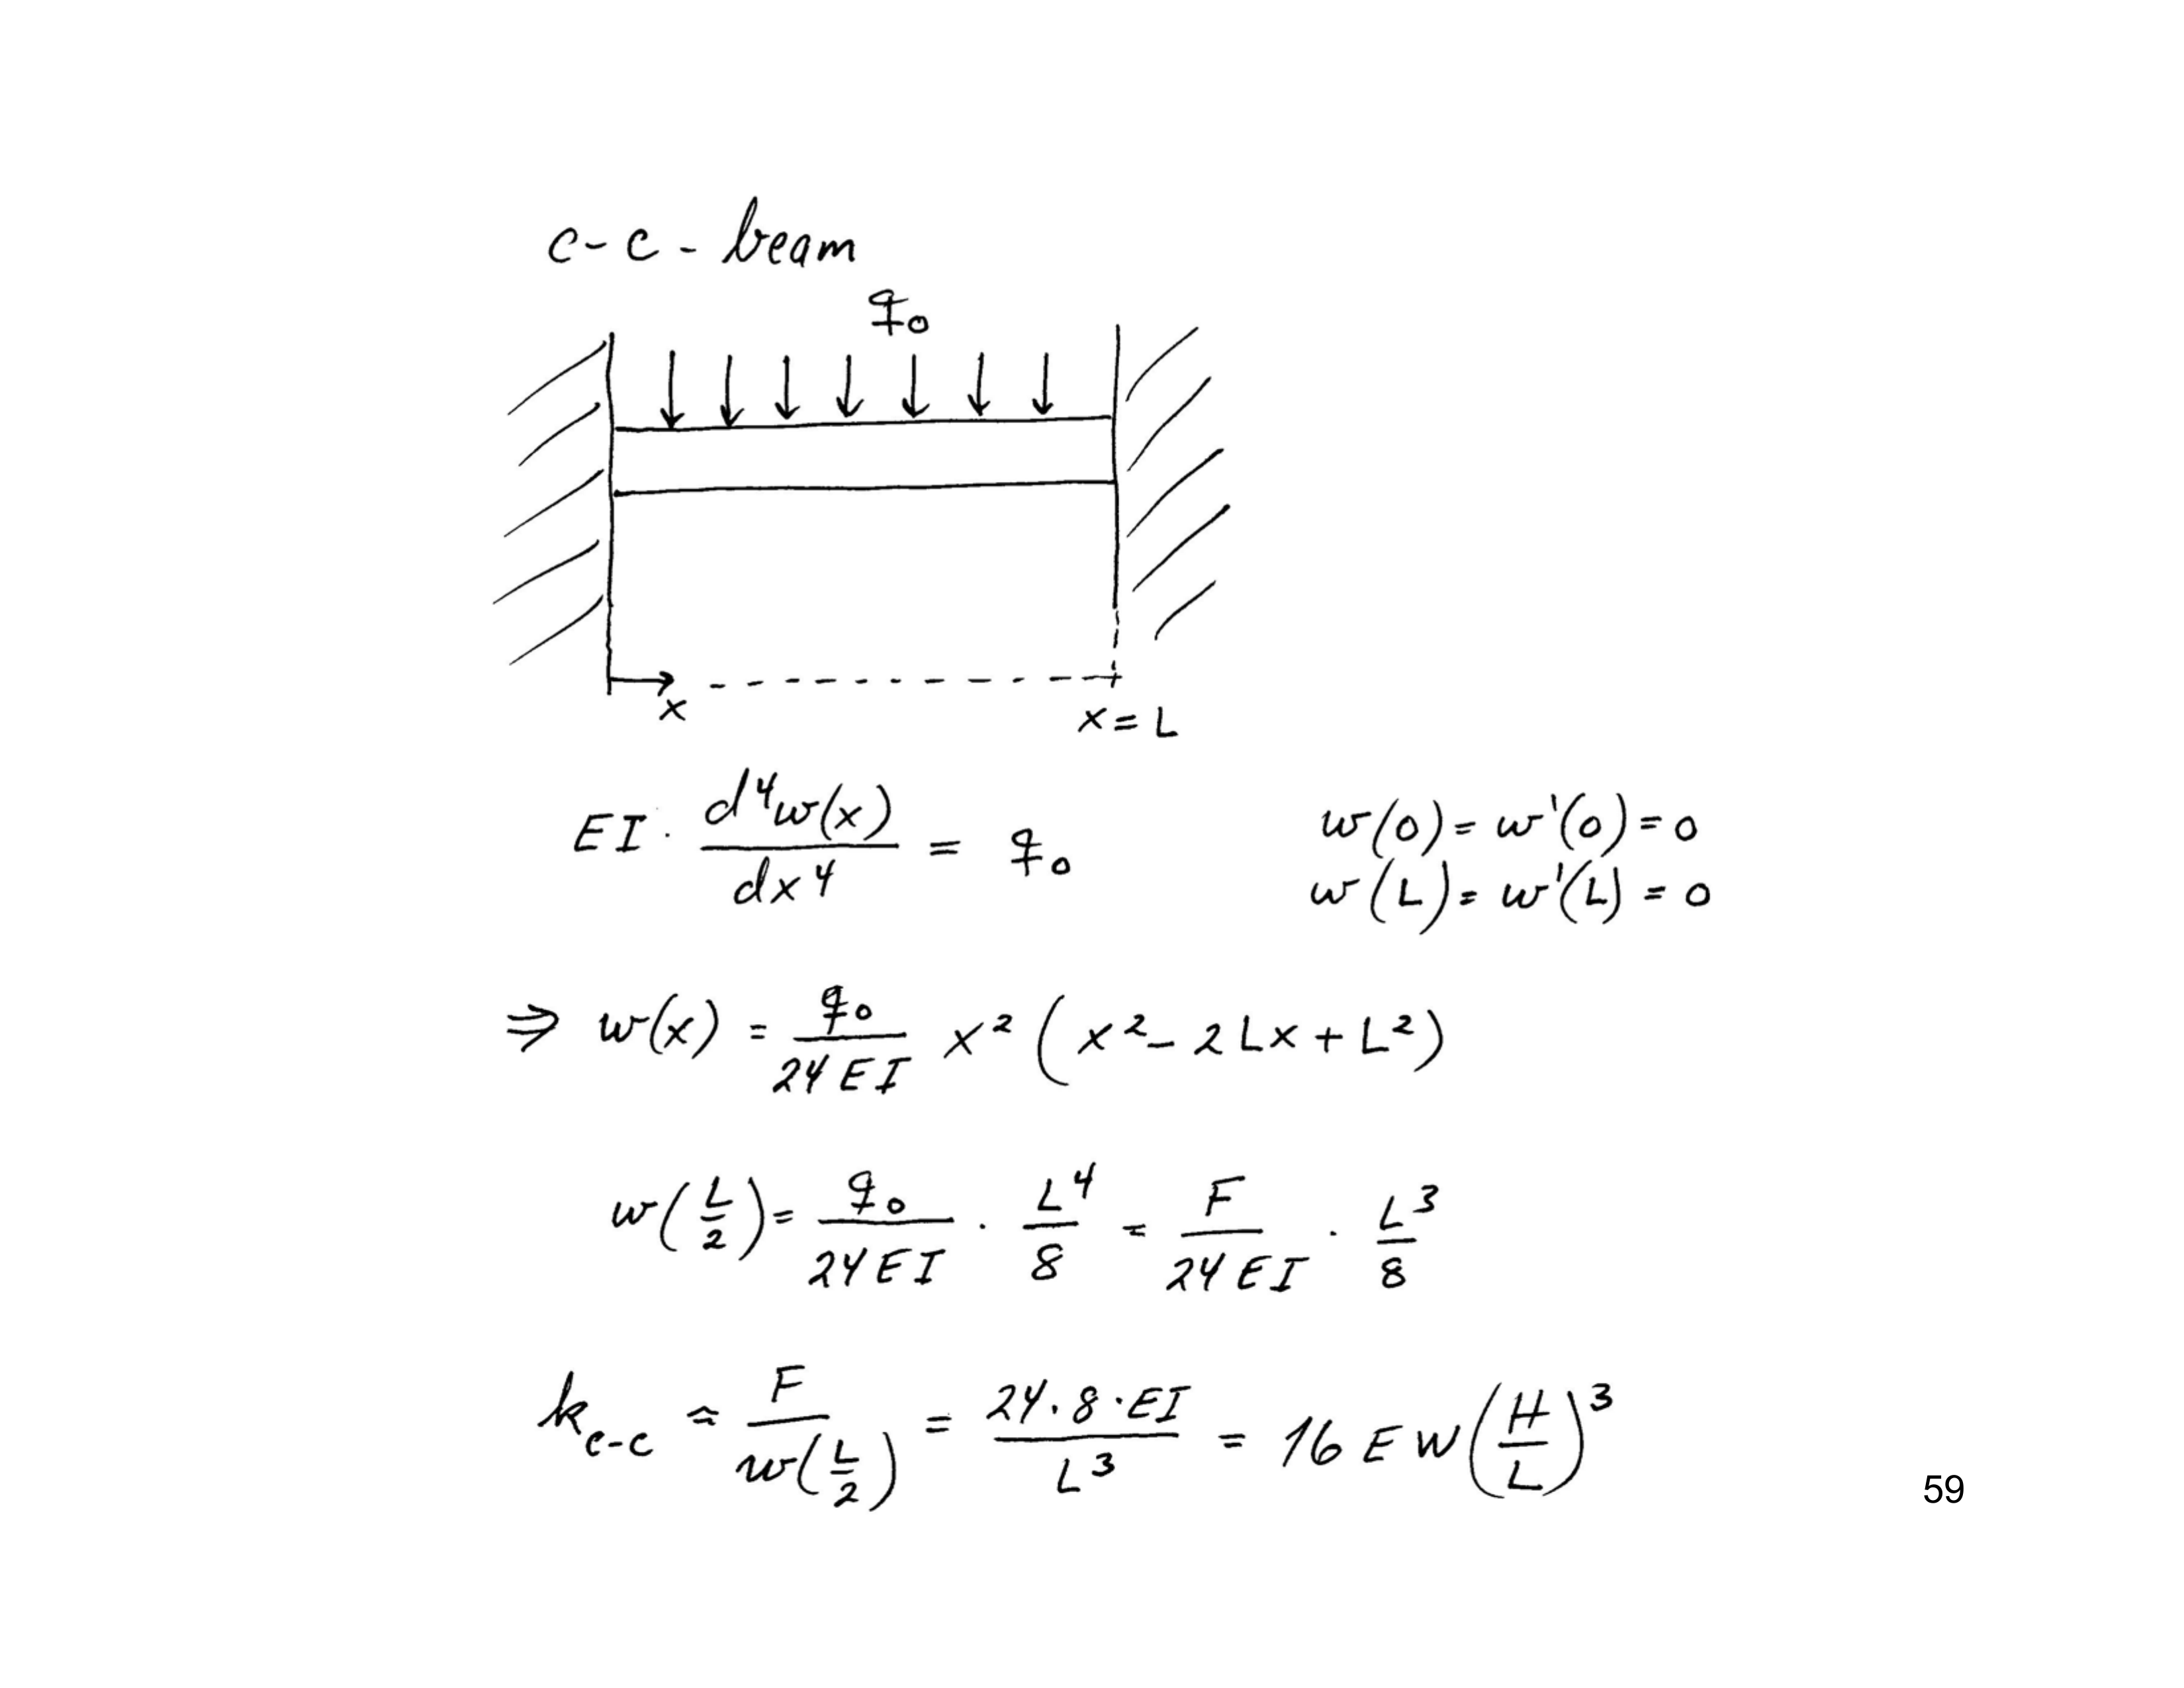 c-c-beam
q₀
x
x = L
EI · d⁴w(x)/dx⁴ = q₀
w(0) = w'(0) = 0
w(L) = w'(L) = 0
⇒ w(x) = q₀/24EI x² (x² - 2Lx + L²)
w(L/2) = q₀/24EI · L⁴/8 = F/24EI · L³/8
k_c-c ≈ F/w(L/2) = 24·8·EI/L³ = 16 EW(H/L)³
59